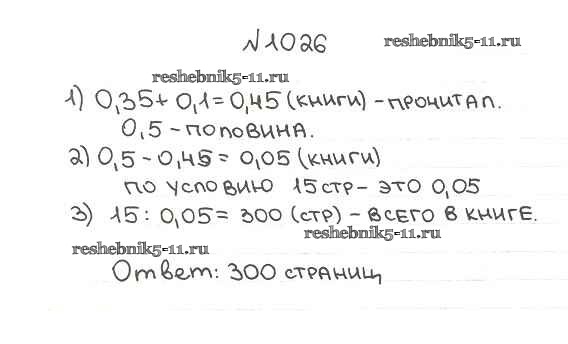 №1026
reshebnik5-11.ru
reshebnik5-11.ru
1) 0,35+ 0,1= 0,45 (книги) - прочитал.
0,5 - половина.
2) 0,5 - 0,45 = 0,05 (книги)
по условию 15 стр - это 0,05
3) 15 : 0,05 = 300 (стр) - всего в книге.
reshebnik5-11.ru
reshebnik5-11.ru
Ответ: 300 страниц